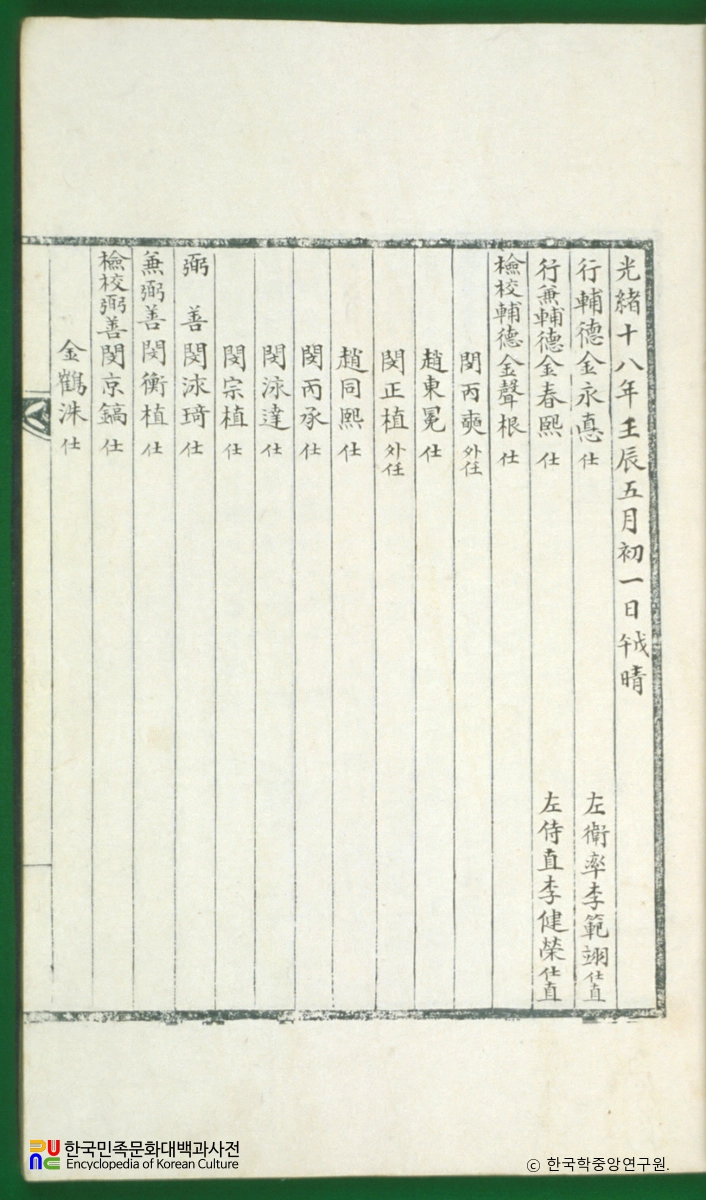 光緖十八年壬辰五月初一日戊午晴
行輔德金永悳仕
左衛率李範翊仕直
行兼輔德金春熙仕
左侍直李健榮仕直
檢校輔德金聲根仕
閔丙奭外任
趙東冕仕
閔正植外任
趙同熙仕
閔丙承仕
閔泳達仕
閔宗植仕
弼善閔泳琦仕
兼弼善閔衡植仕
檢校弼善閔京鎬仕
金鶴洙仕
한국민족문화대백과사전
Encyclopedia of Korean Culture
© 한국학중앙연구원.